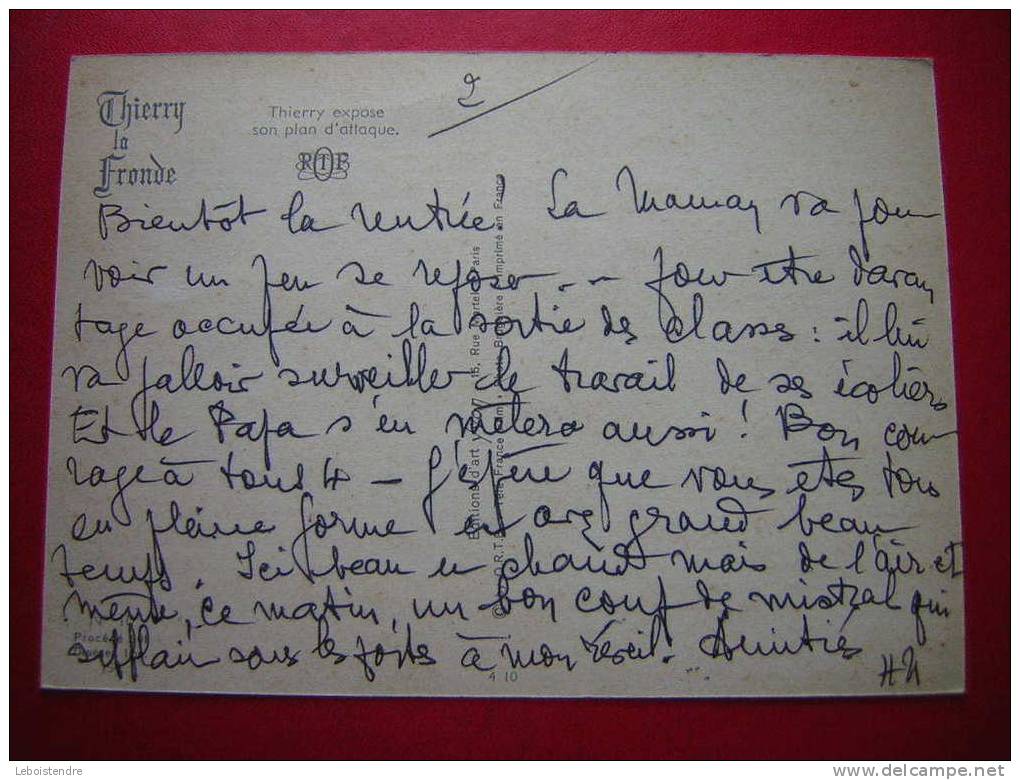 2
Thierry
la
Fronde
Thierry expose
son plan d'attaque.
RTF
Bientôt la rentrée! La Maman va pou
voir un peu se reposer... pour être davan
tage occupée à la sortie des classes : il lui
va falloir surveiller le travail de ses écoliers
Et le Papa s'en mêlera aussi! Bon cou
rage à tous 4 - J'espère que vous êtes tous
en pleine forme et avez grand beau
temps. Ici beau et chaud mais de l'air et
même, ce matin, un bon coup de mistral qui
sifflait sous les portes à mon réveil. Amitiés
Editions d'art 15, Rue Paris
R.T.F. Télé France Imprimé en France
Procédé
4 10
Leboistendre
www.delcampe.net